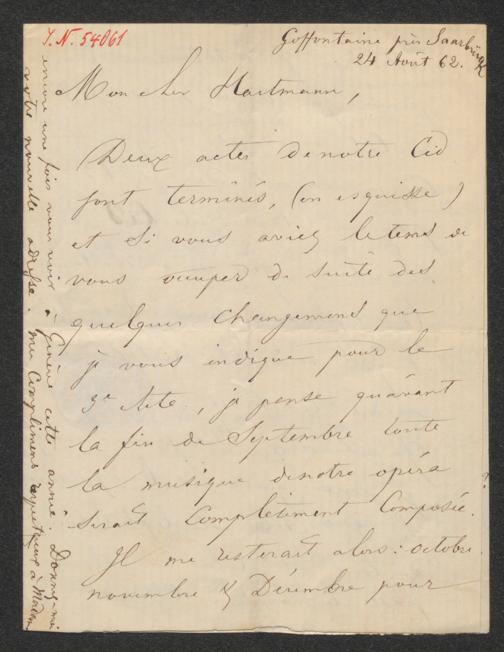 I. N. 54061
Goffontaine près Saarbrück
24 Août 62.
Mon cher Hartmann,
Deux actes de notre Cid
sont terminés, (en esquisse)
et si vous aviez le tems de
vous occuper de suite des
quelques changemens que
je vous indique pour le
3e Acte, je pense qu'avant
la fin de Septembre toute
la musique de notre opéra
serait complètement composée.
Il me resterait alors: octobre
novembre & Décembre pour
encore une fois vous voir à Genève cette année. Donnez-moi
votre nouvelle adresse. mes Complimens respectueux à Madame